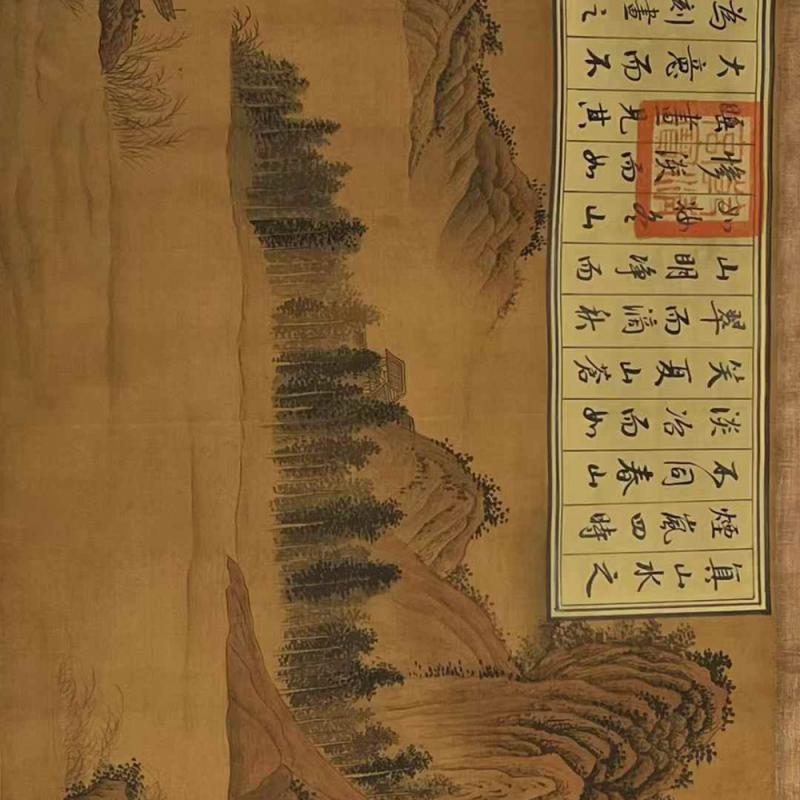 真山水之
煙嵐四時
不同春山
淡冶而如
笑夏山蒼
翠而滴秋
山明净而
如粧冬山
慘淡而如
睡畫見其
大意而不
為刻畫之